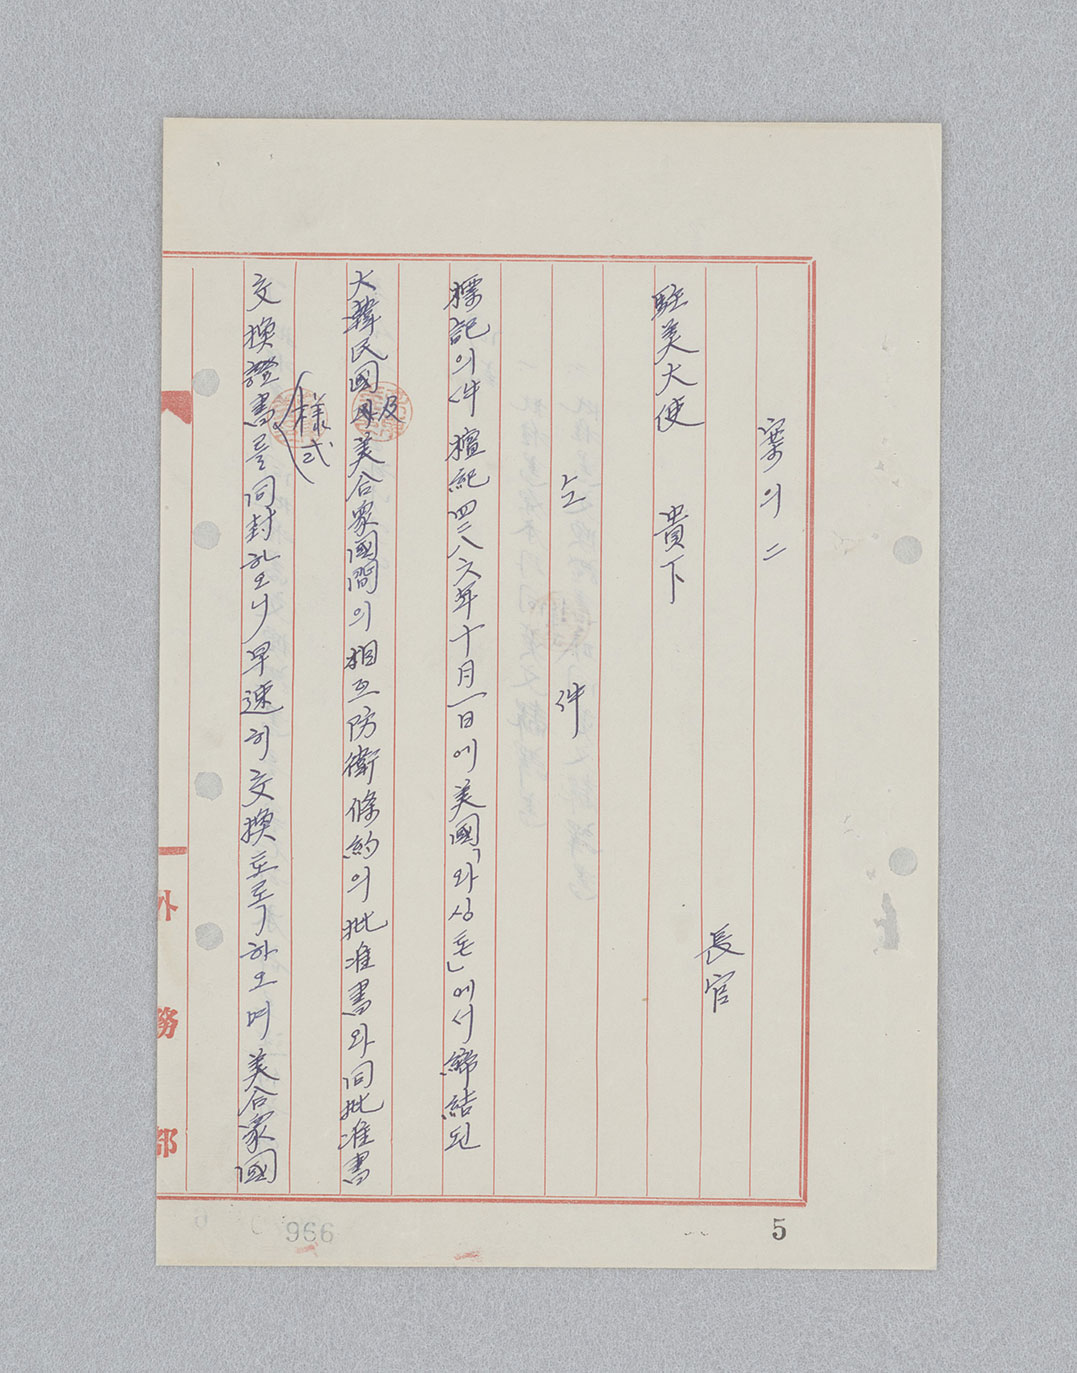 案의 二
長官
駐美大使 貴下
上 件
標記의 件 檀紀四二八六年十月一日에 美國「와싱톤」에서 締結된
大韓民國及美合衆國間의 相互防衛條約의 批准書와 同批准書
交換證書(樣式)를 同封하오니 早速히 交換토록 하오며 美合衆國
外務部
5
966